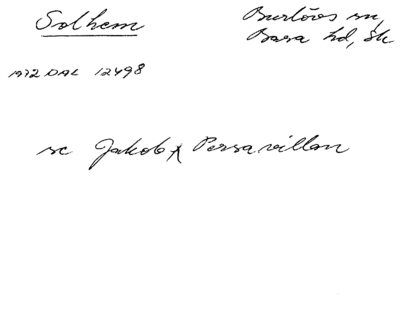 Solhem
Burlövs sn,
Bara hd, Sk
1972 DAL 12498
se Jakob Persavillan